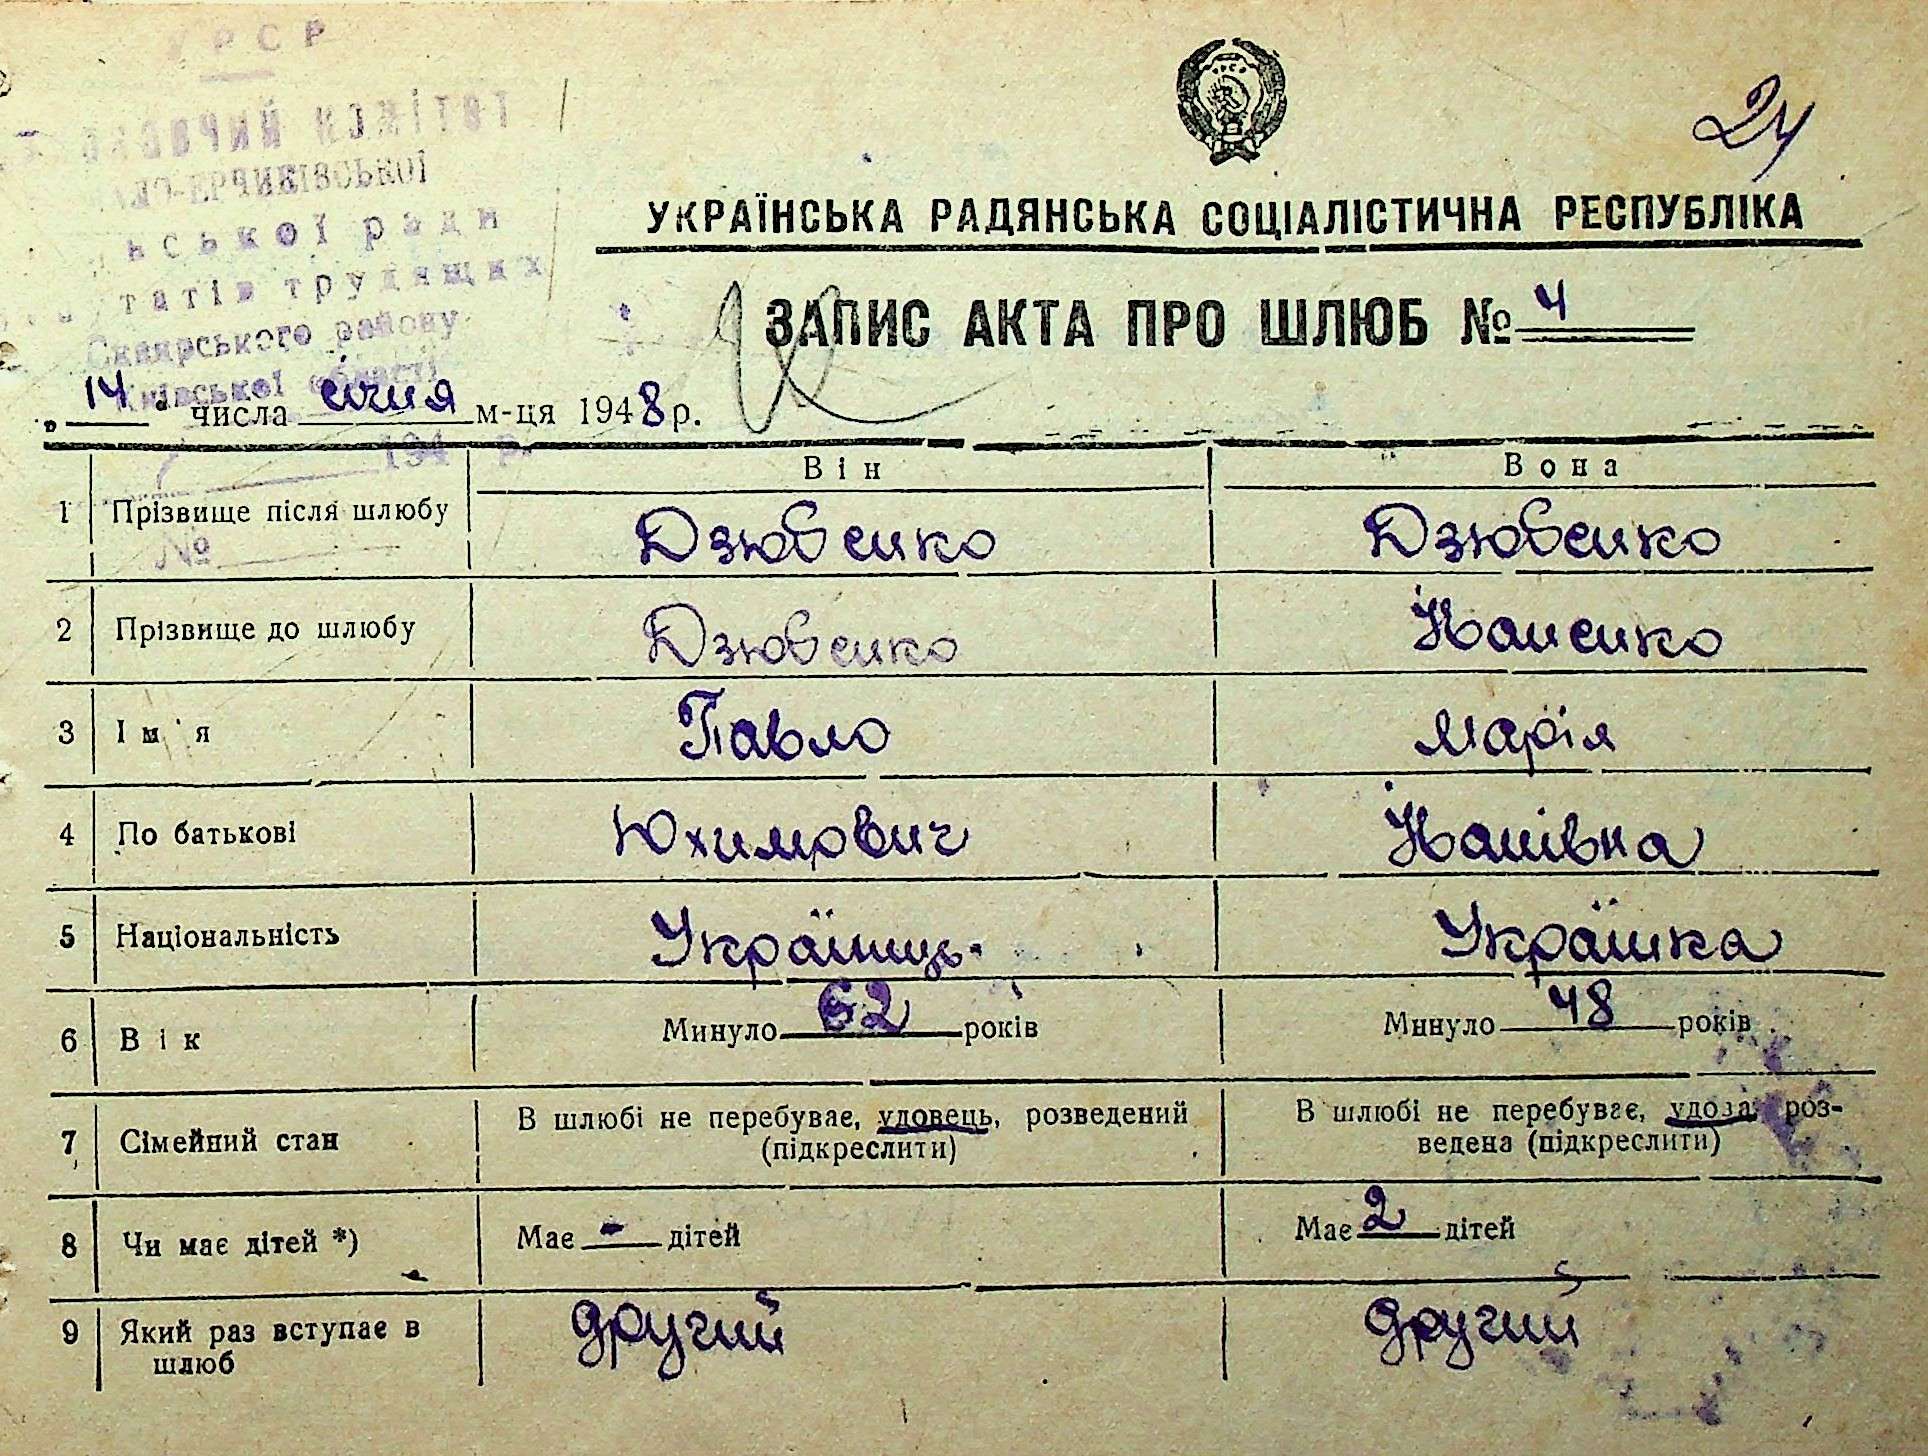 УРСР
комітет
МАЛО-ЕРЧИКІВСЬКОЇ
ської ради
татів трудящих
Сквирського району
Київської області
194 р.
№
24
УКРАЇНСЬКА РАДЯНСЬКА СОЦІАЛІСТИЧНА РЕСПУБЛІКА
ЗАПИС АКТА ПРО ШЛЮБ № 4
„14“ числа січня м-ця 1948 р.
Він Вона
1 Прізвище після шлюбу Дзюбенко Дзюбенко
2 Прізвище до шлюбу Дзюбенко
3 Ім'я Павло Марія
4 По батькові Юхимович
5 Національність Українець Українка
6 Вік Минуло 62 років Минуло 48 років
7 Сімейний стан В шлюбі не перебуває, удовець, розведений В шлюбі не перебуває, удова, роз-
(підкреслити) ведена (підкреслити)
8 Чи має дітей *) Має - дітей Має 2 дітей
9 Який раз вступає в другий другий
шлюб